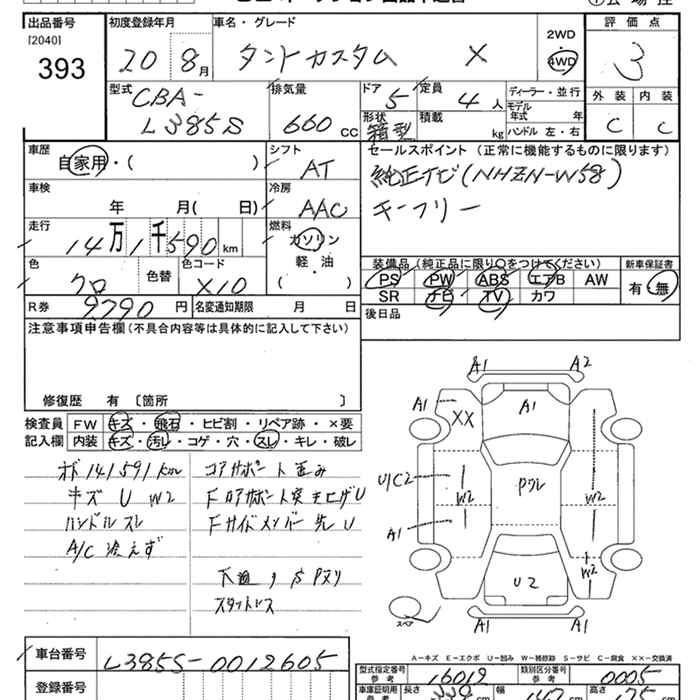 出品番号
[2040]
393
初度登録年月
20 8月
車名・グレード
タントカスタム X
2WD
・
4WD
評価点
3
外装 内装
C C
型式
CBA-
L385S
排気量
660 cc
ドア
5
定員
4人
形状
箱型
積載
kg
ディーラー・並行
モデル
年式 年
ハンドル 左・右
車歴
自家用・( )
シフト
AT
セールスポイント (正常に機能するものに限ります)
純正ナビ(NHZN-W58)
キーフリー
車検
年 月( 日)
冷房
AAC
走行
14万1千590km
燃料
ガソリン
軽・油
( )
色
クロ
色替
色コード
X10
装備品(純正品に限り○をつけてください)
PS PW ABS エアB AW
SR ナビ TV カワ
新車保証書
有・無
R券 9790円
名変通知期限 月 日
後日品
注意事項申告欄(不具合内容等は具体的に記入して下さい)
修復歴 有 〔箇所 〕
検査員
記入欄
FW キズ・飛石・ヒビ割・リペア跡・×要
内装 キズ・汚れ・コゲ・穴・スレ・キレ・破レ
オド141,591km
キズ U W2
ハンドルスレ
A/C 冷えず
コアサポート歪み
Fロアサポート突き上げU
Fサイドメンバー先U
下廻りSアリ
スタットレス
A1 A2
A1 XX A1
U/C2 W2 Pクル W2
A1 W2
U2
A1 A1
スペア
A-キズ E-エクボ U-凹み W-補修跡 S-サビ C-腐食 XX-交換済
車台番号
L385S-0012605
登録番号
型式指定番号
参考
16019
類別区分番号
参考
0005
車庫証明用
参考
長さ
幅
147cm
高さ